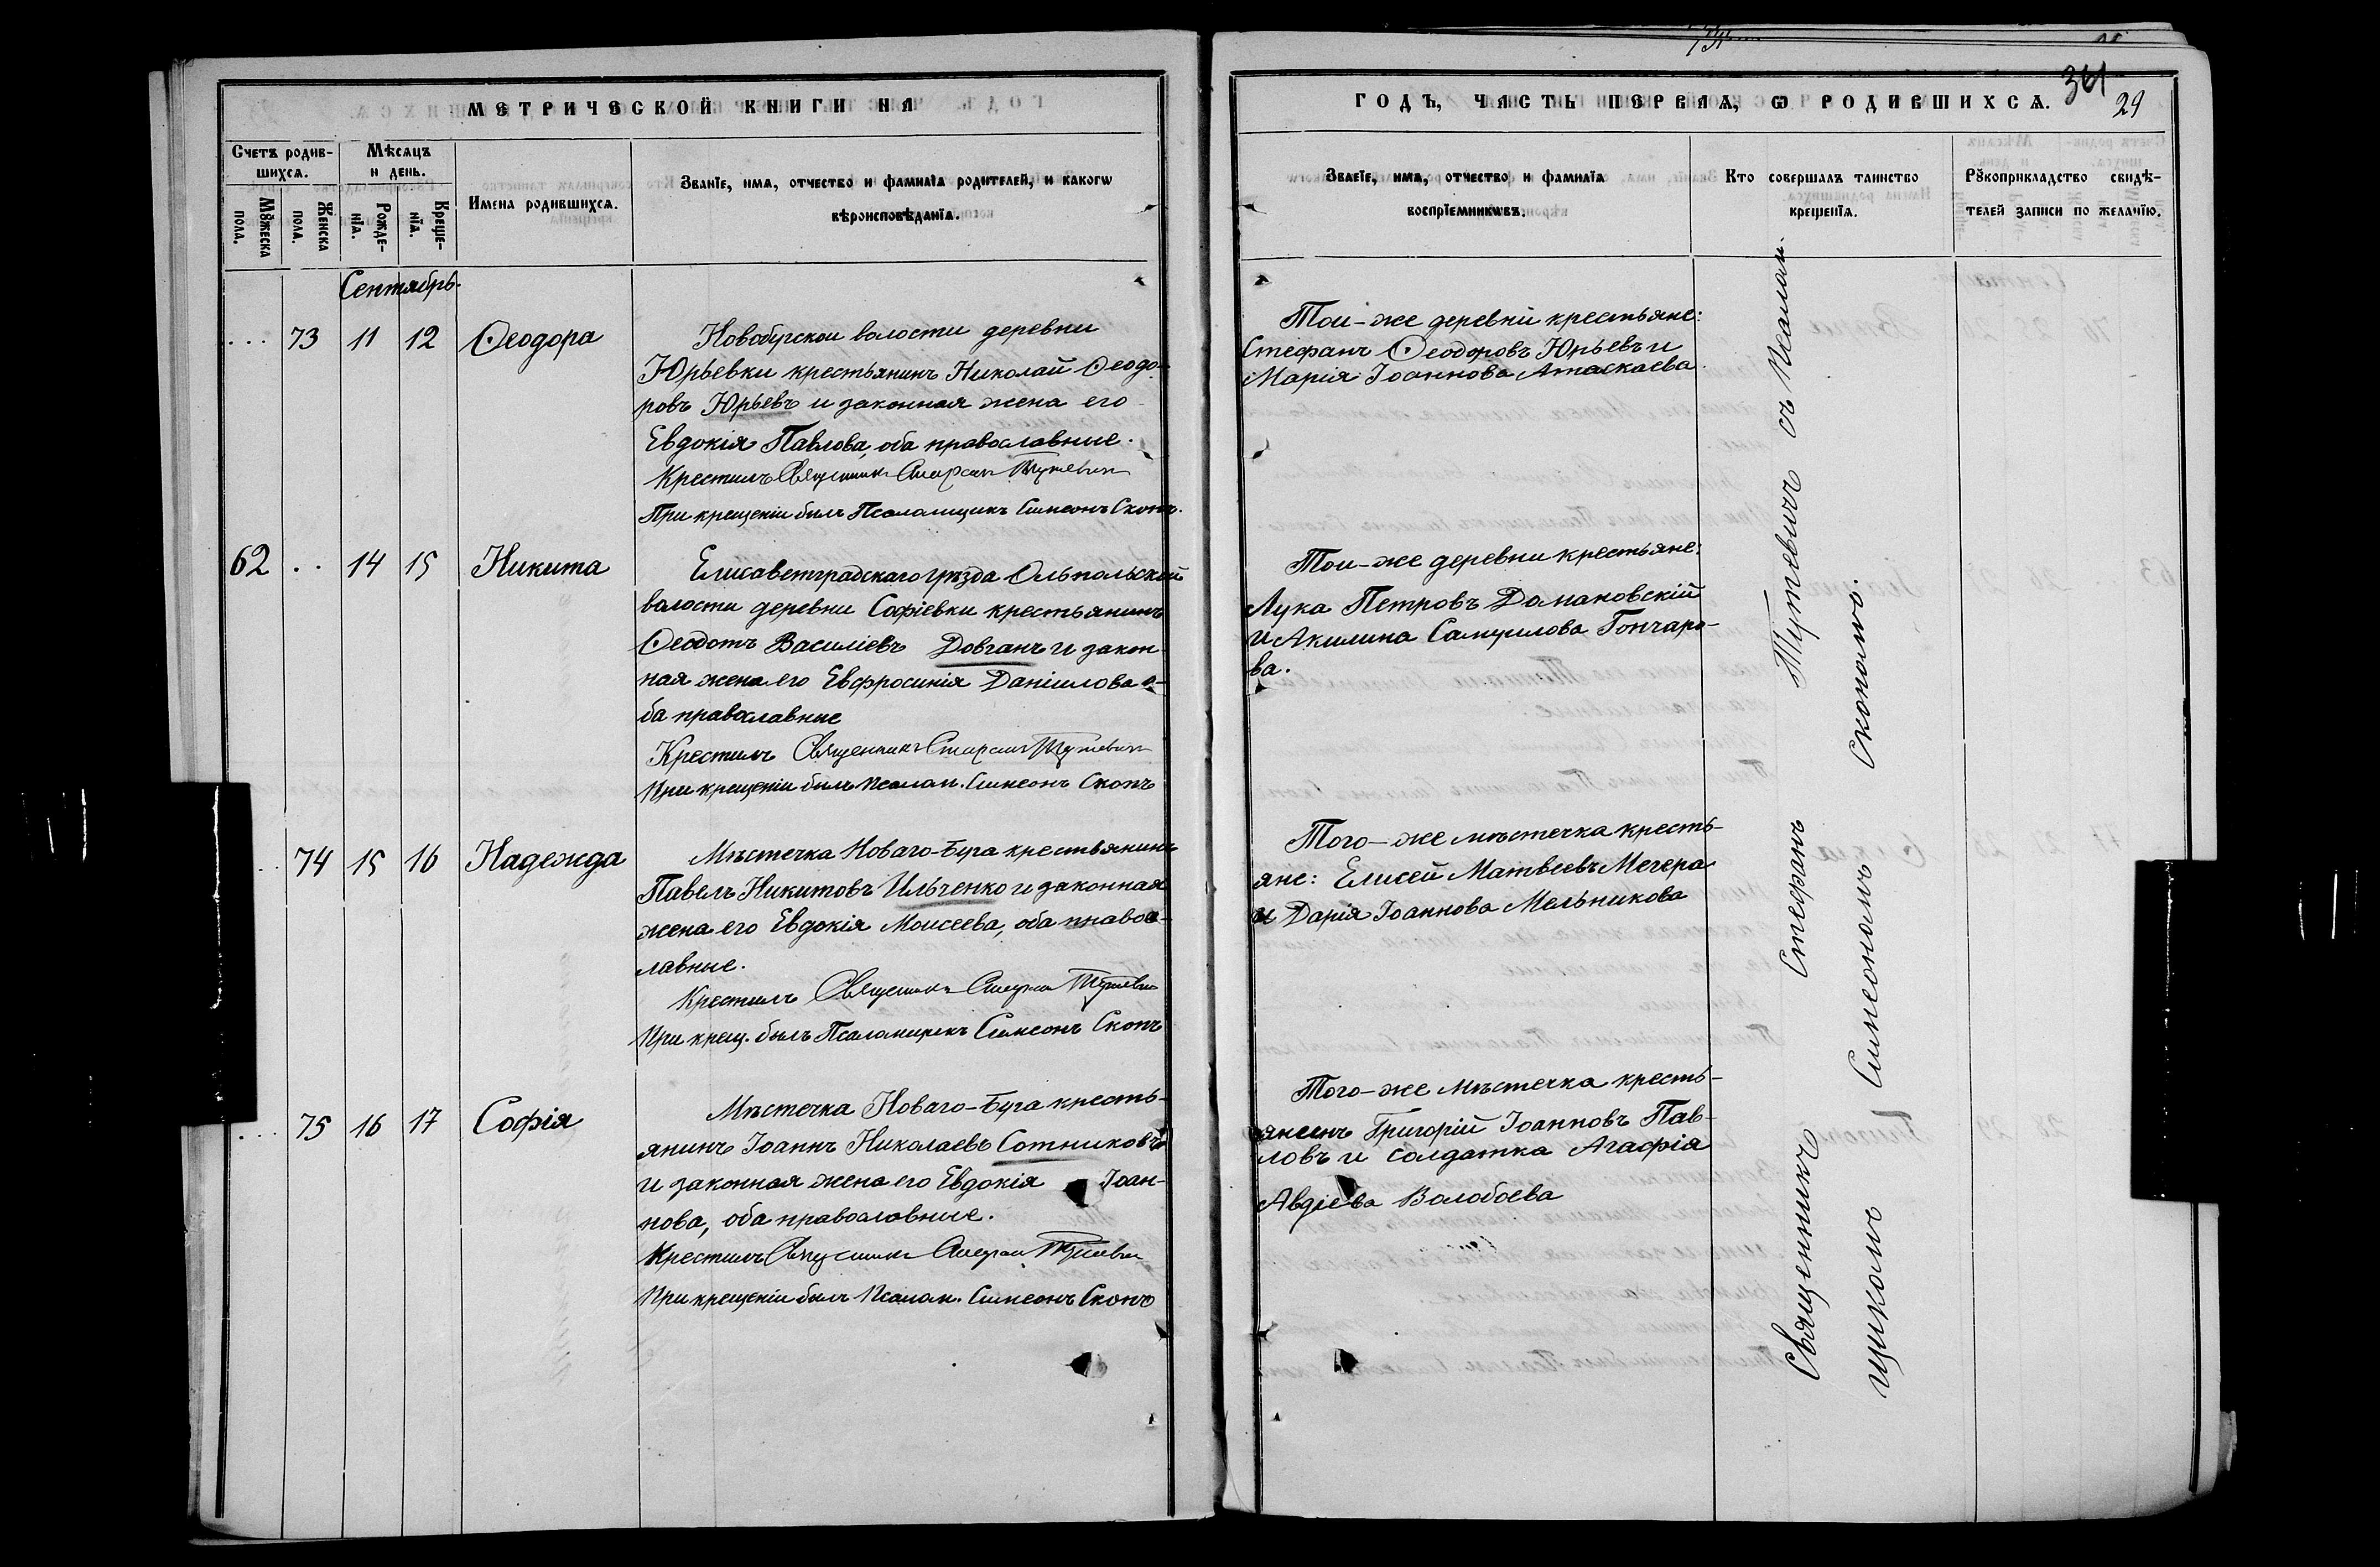 МЕТРИЧЕСКОЙ КНИГИ НА
Счетъ родив-
шихся.
Мѣсяцъ
и день.
Мꙋжеска
пола.
Женска
пола.
Рожде-
нїа.
Креще-
нїа.
Имена родившихся.
Званїе, имя, отчество и фамилїа родителей, и какогѡ
вѣроисповѣданїа.
Сентябрь.
... 73 11 12 Ѳеодора
Новобугскои волости деревни
Юрьевки крестьянинъ Николай Ѳеодо-
ровъ Юрьевъ и законная жена его
Евдокія Павлова, оба православные.
Крестилъ Священникъ Стефанъ Тутевич
При крещеніи былъ Псаломщикъ Симеонъ Скопъ.
62 .. 14 15 Никита
Елисаветградскаго уѣзда Ольгопольской
волости деревни Софіевки крестьянинъ
Ѳеодотъ Василіевъ Довганъ и закон-
ная жена его Евфросинія Даніилова о-
ба православные
Крестилъ Священникъ Стефанъ Тутевич
При крещеніи былъ псалом. Симеонъ Скопъ
.. 74 15 16 Надежда
Мѣстечка Новаго-Буга крестьянинъ
Павелъ Никитовъ Ильченко и законная
жена его Евдокія Моисеева, оба правос-
лавные.
Крестилъ Священникъ Стефанъ Тутевич
При крещ. былъ Псаломщикъ Симеонъ Скопъ
... 75 16 17 Софія
Мѣстечка Новаго-Буга кресть-
янинъ Іоаннъ Николаевъ Сотниковъ
и законная жена его Евдокія Іоан-
нова, оба православные.
Крестилъ Священникъ Стефанъ Тутевич
При крещеніи былъ Псалом. Симеонъ Скопъ
361
29
ГОДЪ, ЧАСТЬ ПЕРВАЯ, Ѡ РОДИВШИХСЯ.
Званїе, имя, отчество и фамилїа
воспрїемникѡвъ.
Кто совершалъ таинство
крещенїя.
Рꙋкоприкладство свидѣ-
телей записи по желанїю.
Тои-же деревни крестьяне:
Стефанъ Ѳеодоровъ Юрьевъ и
Марія Іоаннова Атаскаева
Тои-же деревни крестьяне:
Лука Петровъ Домановскій
и Акилина Самуилова Гончаро-
ва.
Того-же мѣстечка кресть-
яне: Елисей Матвеевъ Мегера
и Дарія Іоаннова Мельникова
Того-же мѣстечка кресть-
янинъ Григорій Іоанновъ Пав-
ловъ и солдатка Агафія
Авдіева Волобоева
Священникъ Стефанъ Тутевичъ съ Псалом-
щикомъ Симеономъ Скопомъ.